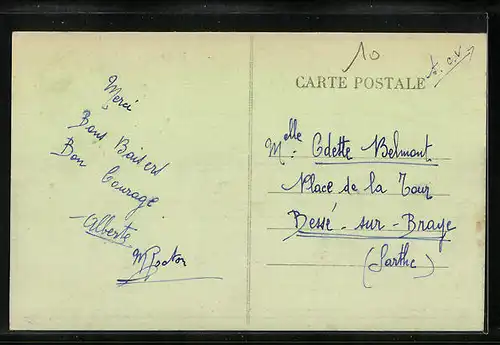 10
CARTE POSTALE
Merci
Bons Baisers
Bon Courage
Alberte
Melle Odette Belmont
Place de la Tour
Bessé-sur-Braye
(Sarthe)